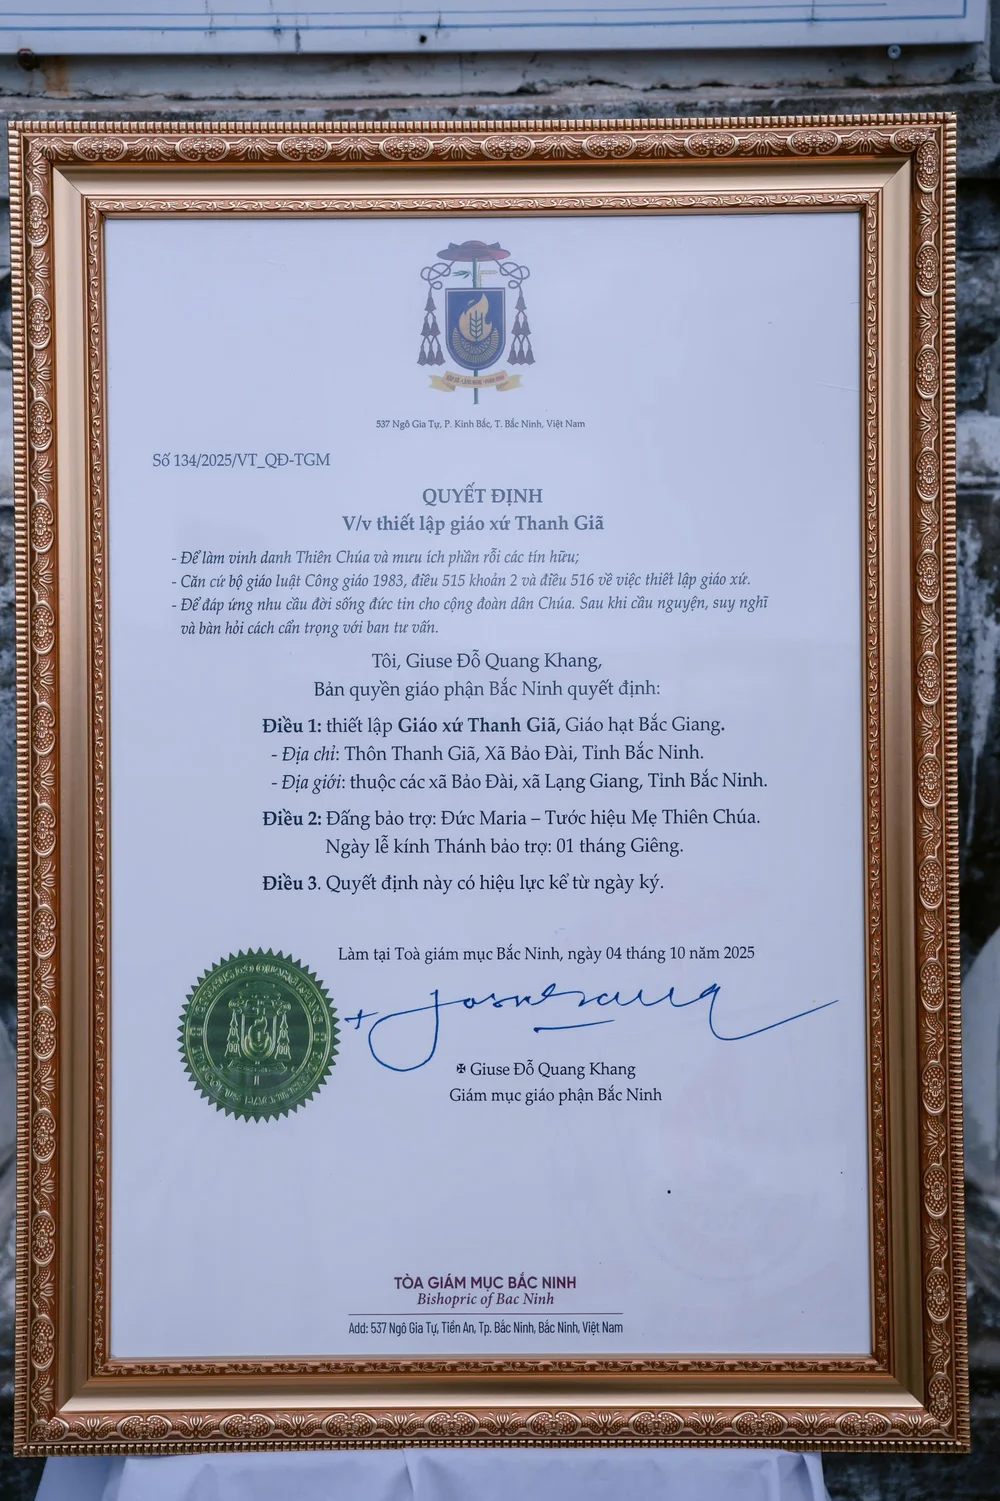 537 Ngô Gia Tự, P. Kinh Bắc, T. Bắc Ninh, Việt Nam
Số 134/2025/VT_QĐ-TGM
QUYẾT ĐỊNH
V/v thiết lập giáo xứ Thanh Giã
- Để làm vinh danh Thiên Chúa và mưu ích phần rỗi các tín hữu;
- Căn cứ bộ giáo luật Công giáo 1983, điều 515 khoản 2 và điều 516 về việc thiết lập giáo xứ.
- Để đáp ứng nhu cầu đời sống đức tin cho cộng đoàn dân Chúa. Sau khi cầu nguyện, suy nghĩ
và bàn hỏi cách cẩn trọng với ban tư vấn.
Tôi, Giuse Đỗ Quang Khang,
Bản quyền giáo phận Bắc Ninh quyết định:
Điều 1: thiết lập Giáo xứ Thanh Giã, Giáo hạt Bắc Giang.
- Địa chỉ: Thôn Thanh Giã, Xã Bảo Đài, Tỉnh Bắc Ninh.
- Địa giới: thuộc các xã Bảo Đài, xã Lạng Giang, Tỉnh Bắc Ninh.
Điều 2: Đấng bảo trợ: Đức Maria – Tước hiệu Mẹ Thiên Chúa.
Ngày lễ kính Thánh bảo trợ: 01 tháng Giêng.
Điều 3. Quyết định này có hiệu lực kể từ ngày ký.
Làm tại Toà giám mục Bắc Ninh, ngày 04 tháng 10 năm 2025
✠ Giuse Đỗ Quang Khang
Giám mục giáo phận Bắc Ninh
TÒA GIÁM MỤC BẮC NINH
Bishopric of Bac Ninh
Add: 537 Ngô Gia Tự, Tiền An, Tp. Bắc Ninh, Bắc Ninh, Việt Nam